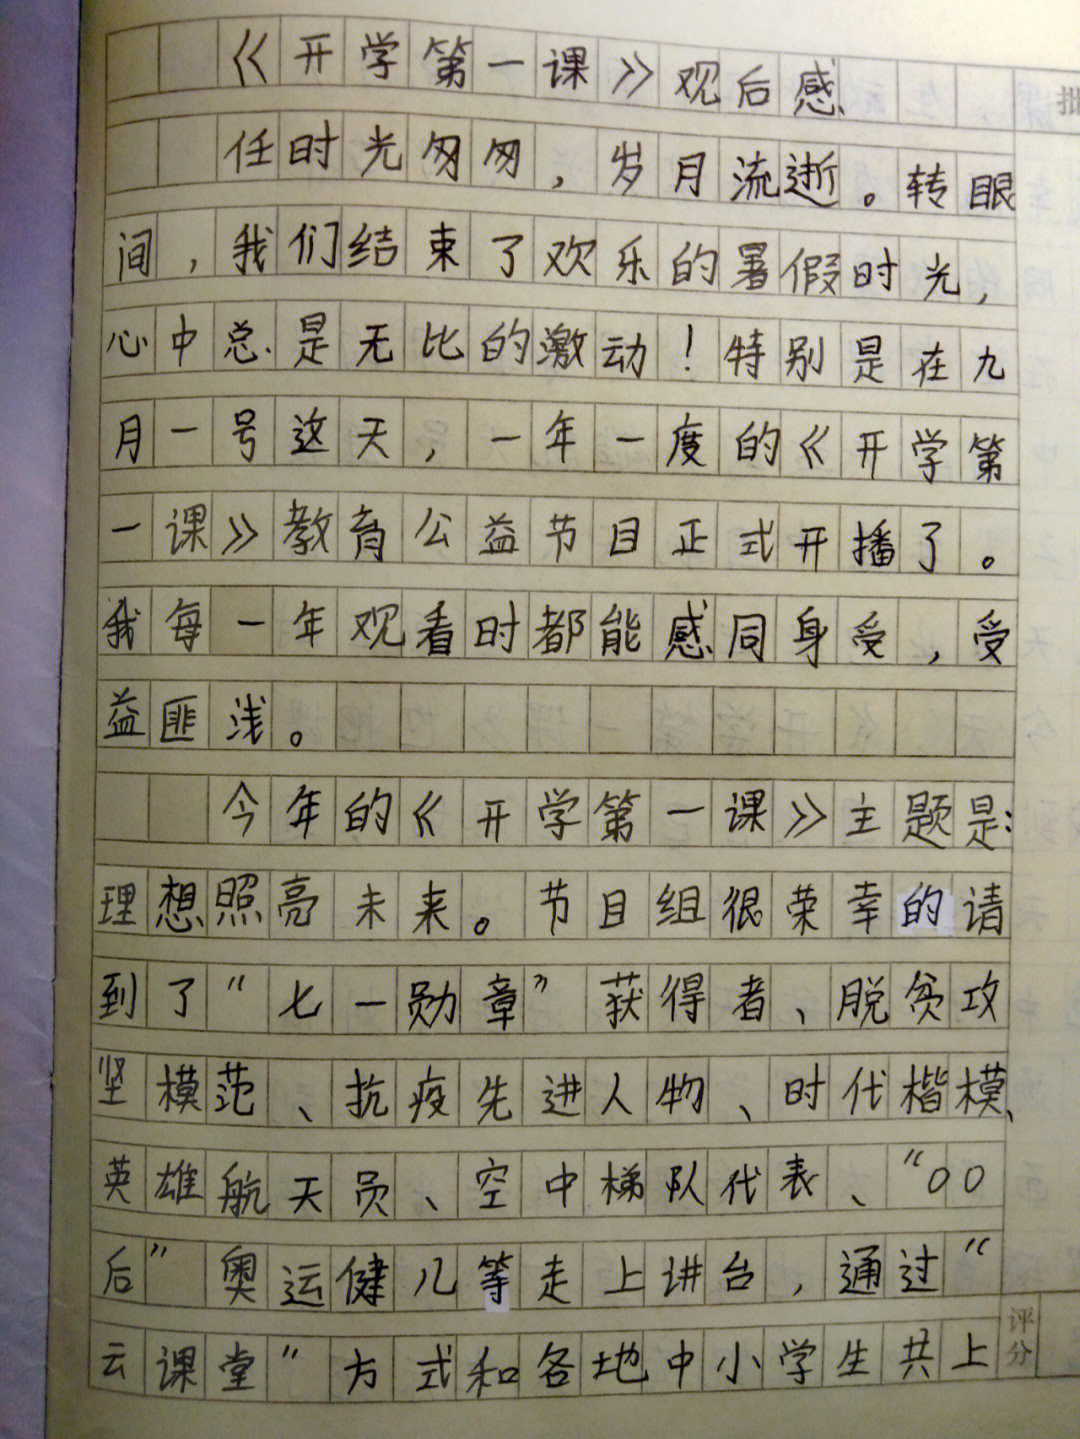 《开学第一课》观后感
任时光匆匆，岁月流逝。转眼
间，我们结束了欢乐的暑假时光，
心中总是无比的激动！特别是在九
月一号这天，一年一度的《开学第
一课》教育公益节目正式开播了。
我每一年观看时都能感同身受，受
益匪浅。
今年的《开学第一课》主题是：
理想照亮未来。节目组很荣幸的请
到了“七一勋章”获得者、脱贫攻
坚模范、抗疫先进人物、时代楷模、
英雄航天员、空中梯队代表、“00
后”奥运健儿等走上讲台，通过“
云课堂”方式和各地中小学生共上
批
评分